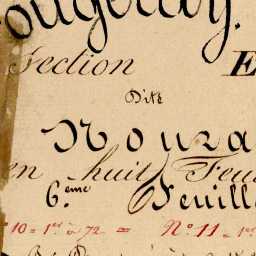 ougeray.
Section E
Dite
Nouza
en huit Feui
6.eme Feuille
10 = 1er à 72 = N.o 11 = 1er